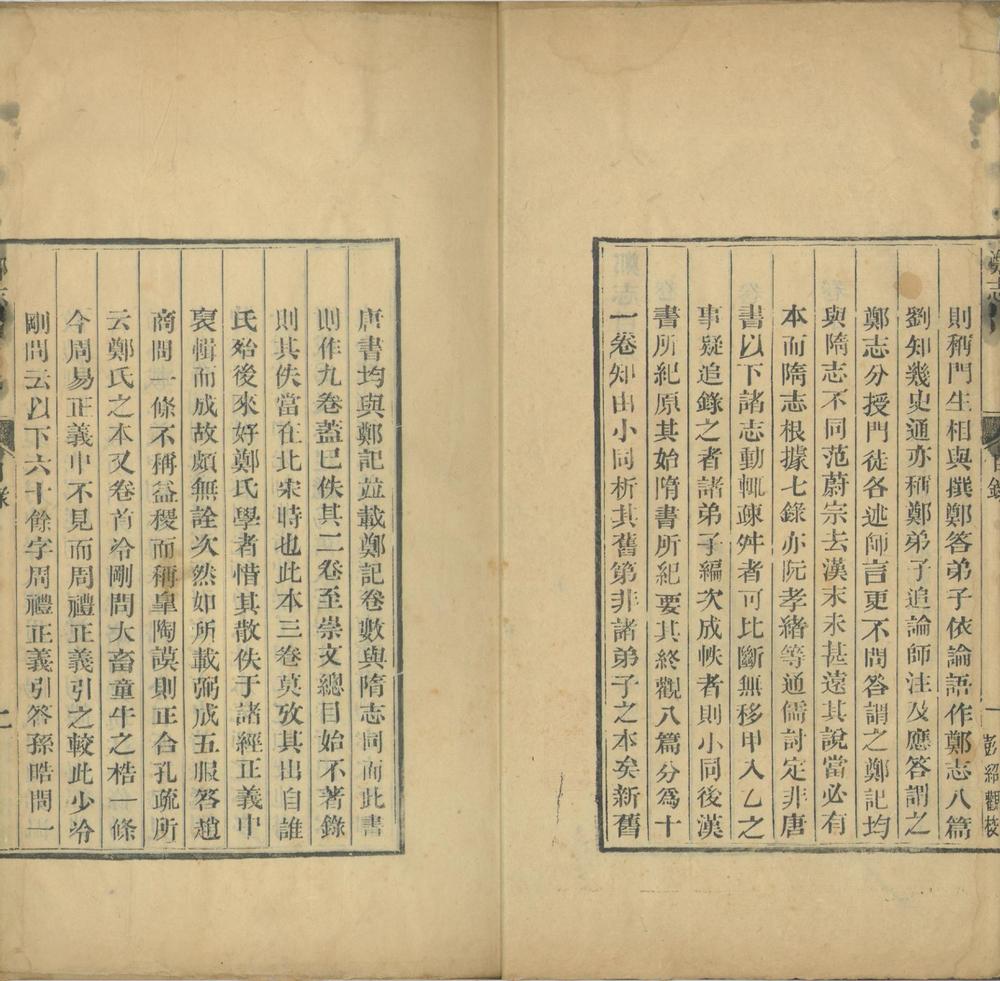 則稱門生相與撰鄭答弟子依論語作鄭志八篇
劉知幾史通亦稱鄭弟子追論師注及應答謂之
鄭志分授門徒各述師言更不問答謂之鄭記均
與隋志不同范蔚宗去漢末未甚遠其說當必有
本而隋志根據七錄亦阮孝緒等通儒討定非唐
書以下諸志動輒疎舛者可比斷無移甲入乙之
事疑追錄之者諸弟子編次成帙者則小同後漢
書所紀原其始隋書所紀要其終觀八篇分爲十
一卷知由小同析其舊第非諸弟子之本矣新舊
唐書均與鄭記並載鄭記卷數與隋志同而此書
則作九卷蓋已佚其二卷至崇文總目始不著錄
則其佚當在北宋時也此本三卷莫攷其出自誰
氏殆後來好鄭氏學者惜其散佚于諸經正義中
裒輯而成故頗無詮次然如所載弼成五服答趙
商問一條不稱益稷而稱臯陶謨則正合孔疏所
云鄭氏之本又卷首冷剛問大畜童牛之梏一條
今周易正義中不見而周禮正義引之較此少冷
剛問云以下六十餘字周禮正義引答孫晧問一
彭紹觀校